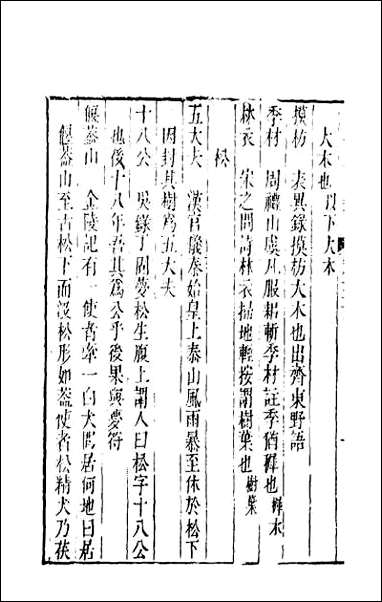 大木也以下大木
模枋　表異錄模枋大木也出齊東野語
季材　周禮山虞凡服耜斬季材註季猶穉也穉木
林衣　宋之問詩林衣掃地輕按謂樹葉也樹葉
松
五大夫　漢官儀秦始皇上泰山風雨暴至休於松下
因封其樹爲五大夫
十八公　吳錄丁固夢松生腹上謂人曰松字十八公
也後十八年吾其爲公乎後果與夢符
偃葢山　金陵記有一使者牽一白犬問居何地曰居
偃葢山至古松下而沒松形如葢使者松精犬乃茯